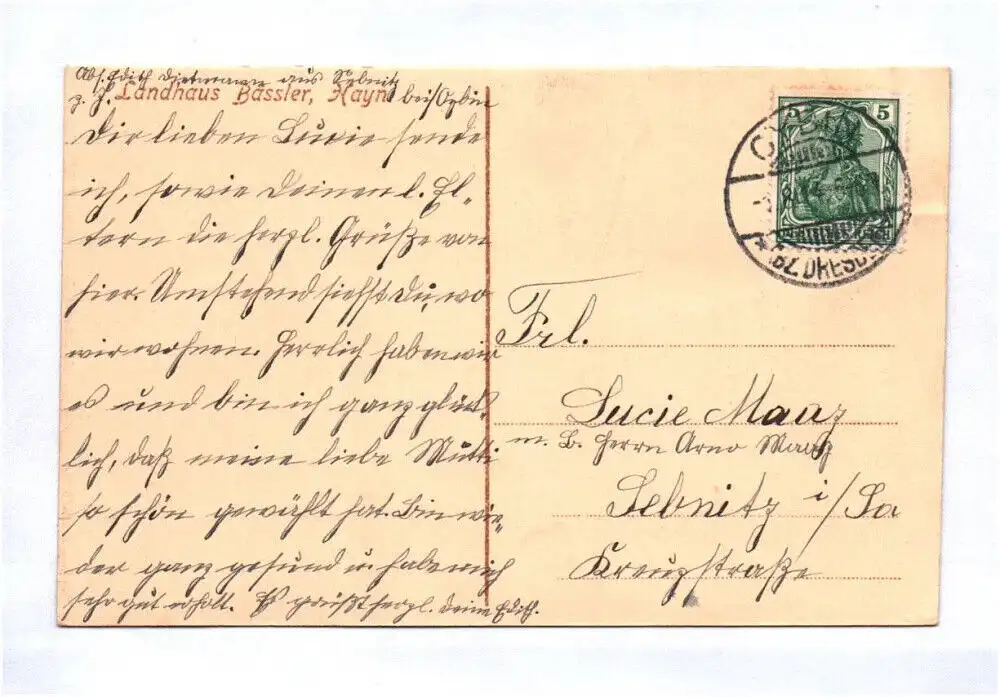 Abs. Edith Dietmann aus Sebnitz
z. Z. Landhaus Bässler, Hayn bei/Oybin
Dir lieben Lucie sende
ich, sowie Deinen l. El-
tern die herzl. Grüße von
hier. Umstehend siehst Du, wo
wir wohnen. Herrlich haben wir
es und bin ich ganz glück-
lich, daß meine liebe Mutti
so schön gewählt hat. Bin wie-
der ganz gesund u. habe mich
sehr gut erholt. Es grüßt herzl. Deine Edith.
5 5
OYBIN
*(BZ. DRESDEN)
Frl.
Lucie Maaz
m. B. Herrn Arno Maaz
Sebnitz i/Sa
Kreuzstraße